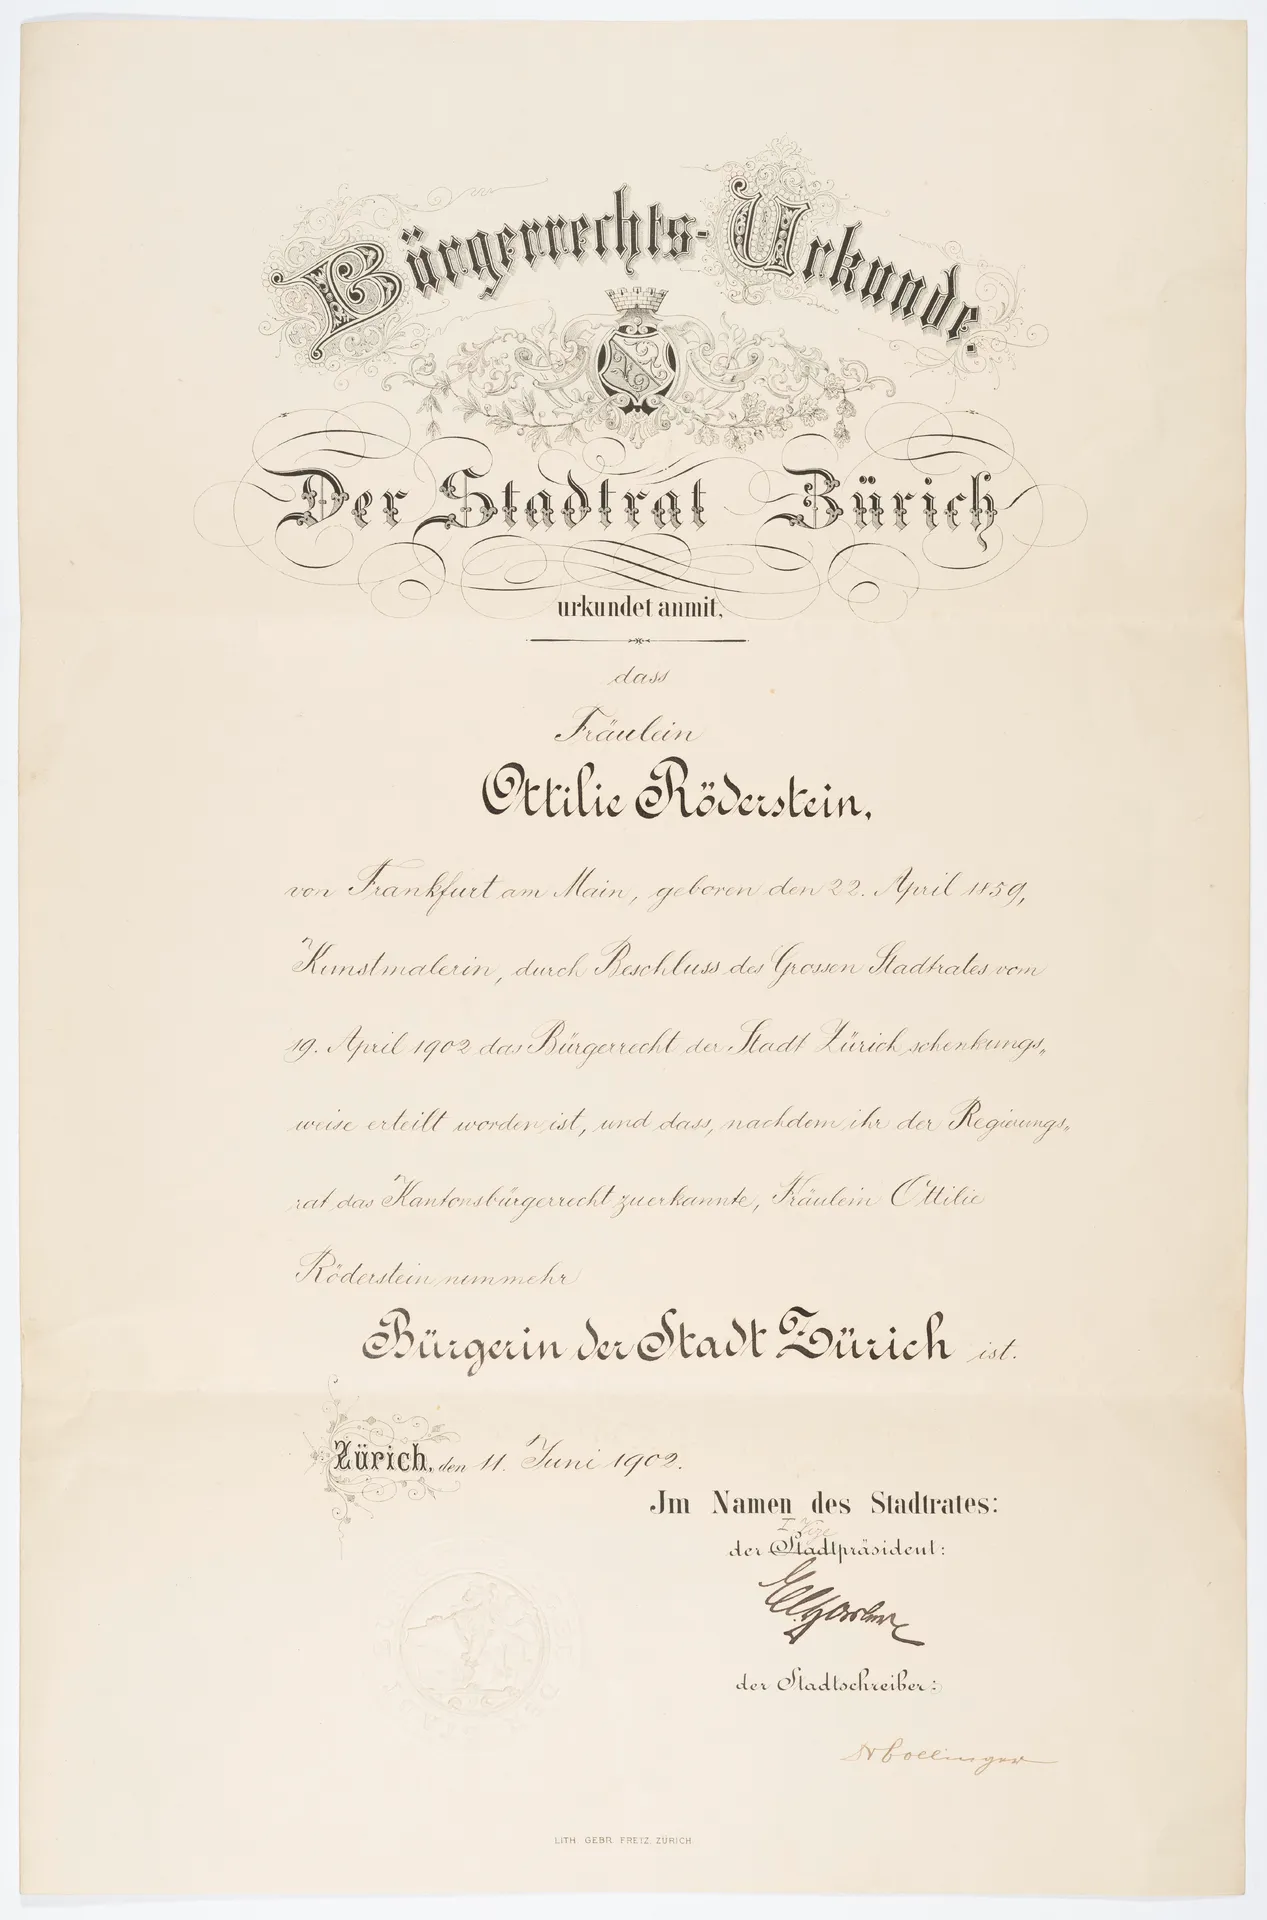 Bürgerrechts-Urkunde.
Der Stadtrat Zürich
urkundet anmit,
dass
Fräulein
Ottilie Röderstein,
von Frankfurt am Main, geboren den 22. April 1859,
Kunstmalerin, durch Beschluss des Grossen Stadtrates vom
19. April 1902 das Bürgerrecht der Stadt Zürich schenkungs„
weise erteilt worden ist, und dass, nachdem ihr der Regierungs„
rat das Kantonsbürgerrecht zuerkannte, Fräulein Ottilie
Röderstein nunmehr
Bürgerin der Stadt Zürich ist.
Zürich, den 11. Juni 1902.
Im Namen des Stadtrates:
I. Vize
der Stadtpräsident:
der Stadtschreiber:
LITH. GEBR. FRETZ, ZÜRICH